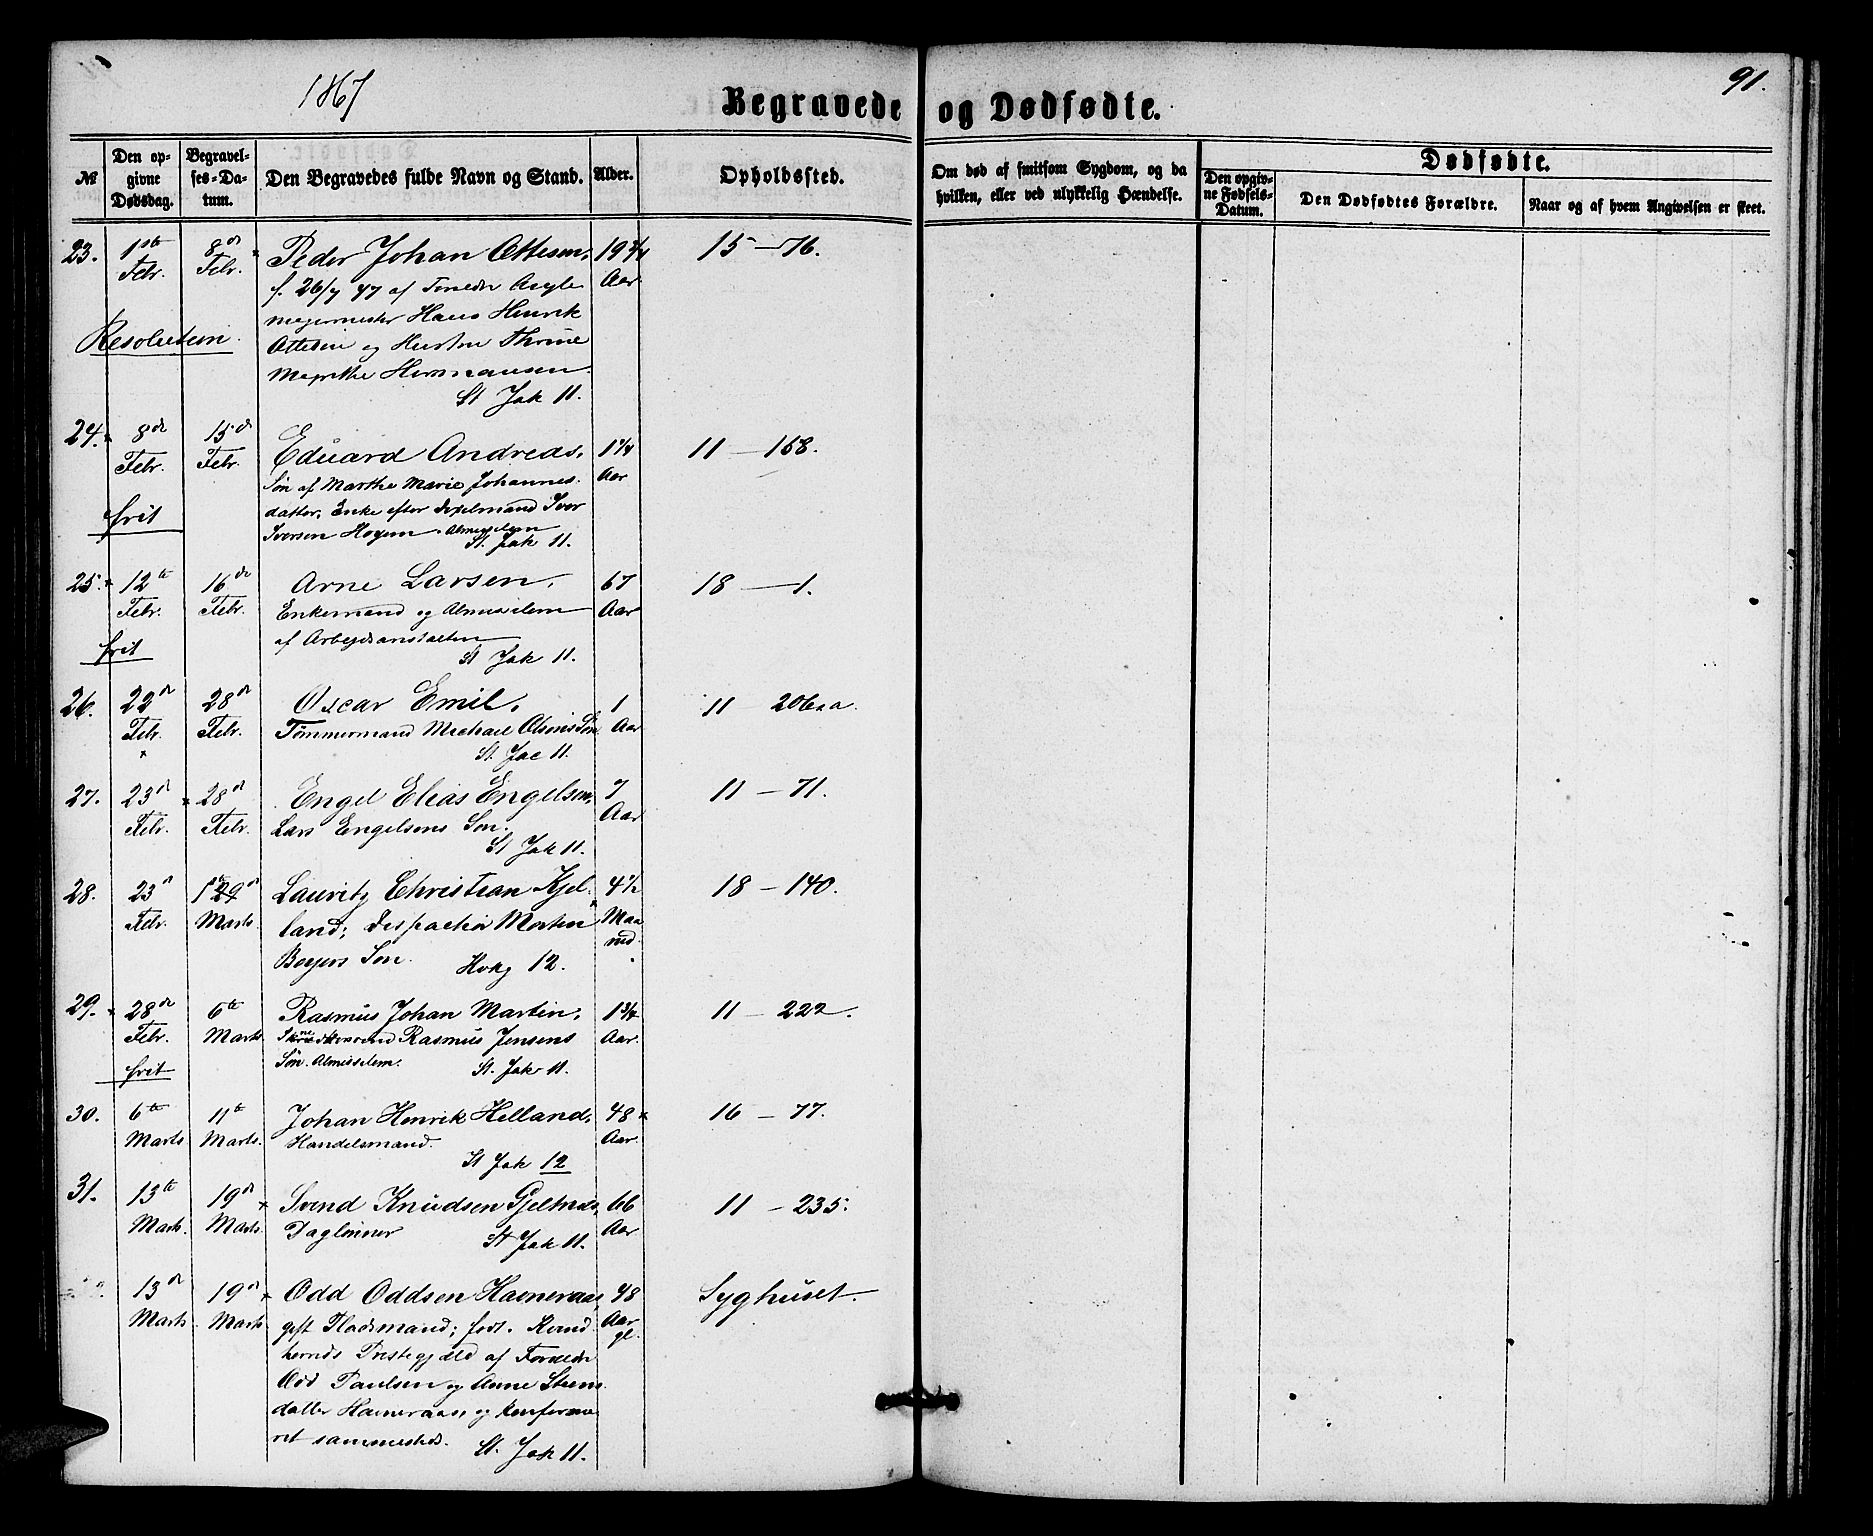 1867
91.
Begravede og Dødfødte.
№
Den opgivne Dødsdag.
Begravelses-Datum.
Den Begravedes fulde Navn og Stand.
Alder.
Opholdssted.
Om død af smitsom Sygdom, og da hvilken, eller ved ulykkelig Hændelse.
Dødfødte.
Den opgivne Fødsels-Datum.
Den Dødfødtes Forældre.
Naar og af hvem Angivelsen er skeet.
23. 1ste Febr. 8de Febr. Peder Johan Ottesen, 19 3/4 Aar 15 – 76.
f. 26/7 47 af
magermester Hans Henrik
Resolution.
Ottesen og Hustru Thrine
Magrethe Hermansen.
St Jak 11.
24. 8de Febr. 15de Febr. Eduard Andreas, 1 1/4 Aar 11 – 158.
Søn af Marthe Marie Johannes
datter, Enke efter Iver
frit
Iversen Almisselem
St. Jak 11.
25. 12te Febr. 16de Febr. Arne Larsen, 67 Aar 18 – 1.
Enkemand og Almisselem
af Arbeidsanstalten
frit
St Jak 11.
26. 22de Febr. 28de Febr. Oscar Emil, 1 Aar 11 – 206 a a.
Tømmermand Michael Olsens Søn
St. Jac 11.
27. 23de Febr. 28de Febr. Engel Elias Engelsen, 7 Aar 11 – 71.
Lars Engelsens Søn.
St Jak 11.
28. 23de Febr. 1ste Marts Lauritz Christian Kjel- 4 1/2 Maaned. 18 – 140.
land; Dispachør Morten
Beyers Søn.
Hvkg 12.
29. 28de Febr. 6te Marts Rasmus Johan Martin, 1 3/4 Aar. 11 – 222.
Rasmus Jensens
Søn. Almisselem.
frit
St. Jak 11.
30. 6te Marts 11te Marts. Johan Henrik Helland, 48 Aar. 16 – 77.
Handelsmand.
St Jak 12
31. 13te Marts. 19de Marts. Svend Knudsen Gjelmes, 66 Aar 11 – 235.
Daglønner
St Jak 11.
13de Marts 19de Marts. Odd Oddsen Hameraas, 48 Aar gl. Syghuset.
gift Pladsmand; født. Qvind
herreds Prestegjæld af Forældre
Odd Paulsen og Anne Steens
datter Hameraas og konferme
ret sammesteds.
St. Jak 11.